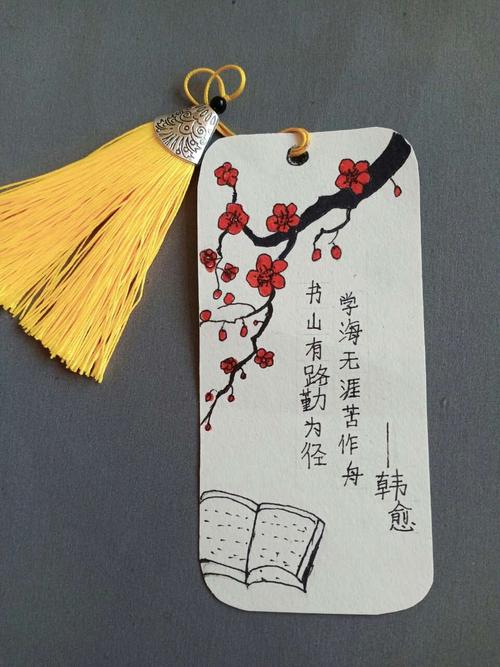 书山有路勤为径
学海无涯苦作舟
——韩愈